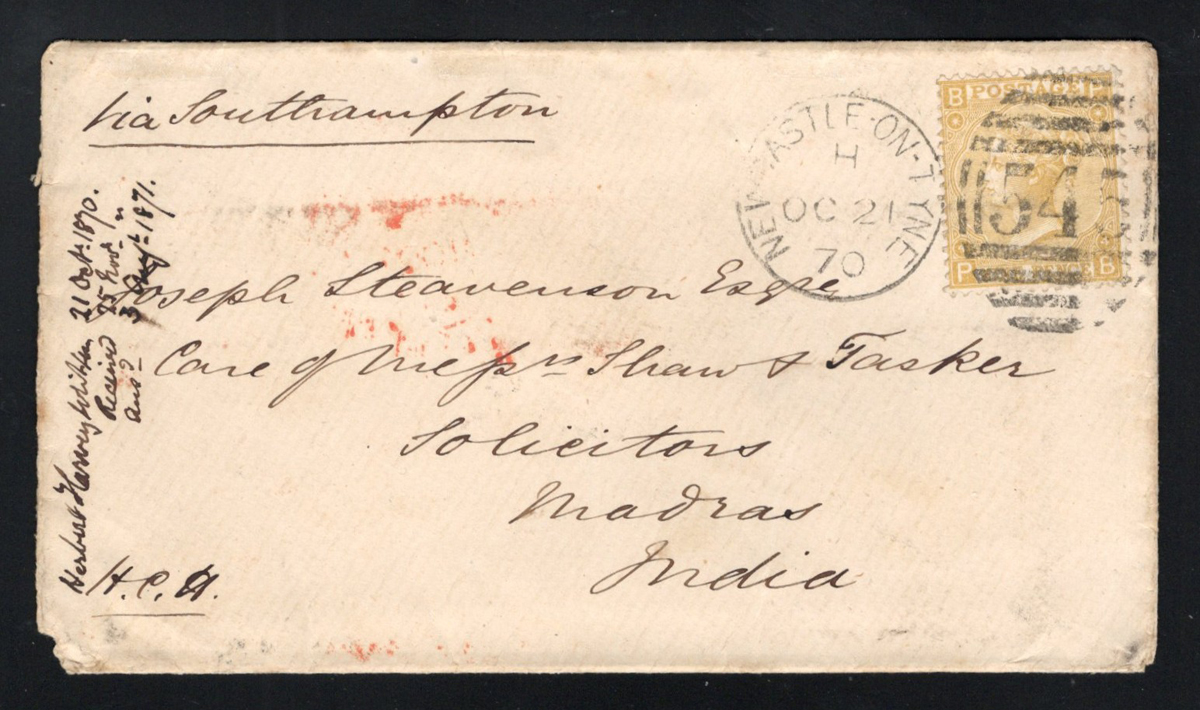 via Southampton
B POSTAGE P
NEWCASTLE-ON-TYNE
H
OC 21
70
545
P B
Joseph Steavenson Esqre
Care of Messrs Shaw & Tasker
Solicitors
Madras
India
H.C.A.
Herbert Harvey 21 Oct. 1870.
Received 25 Nov. "
Ansd 3 1871.